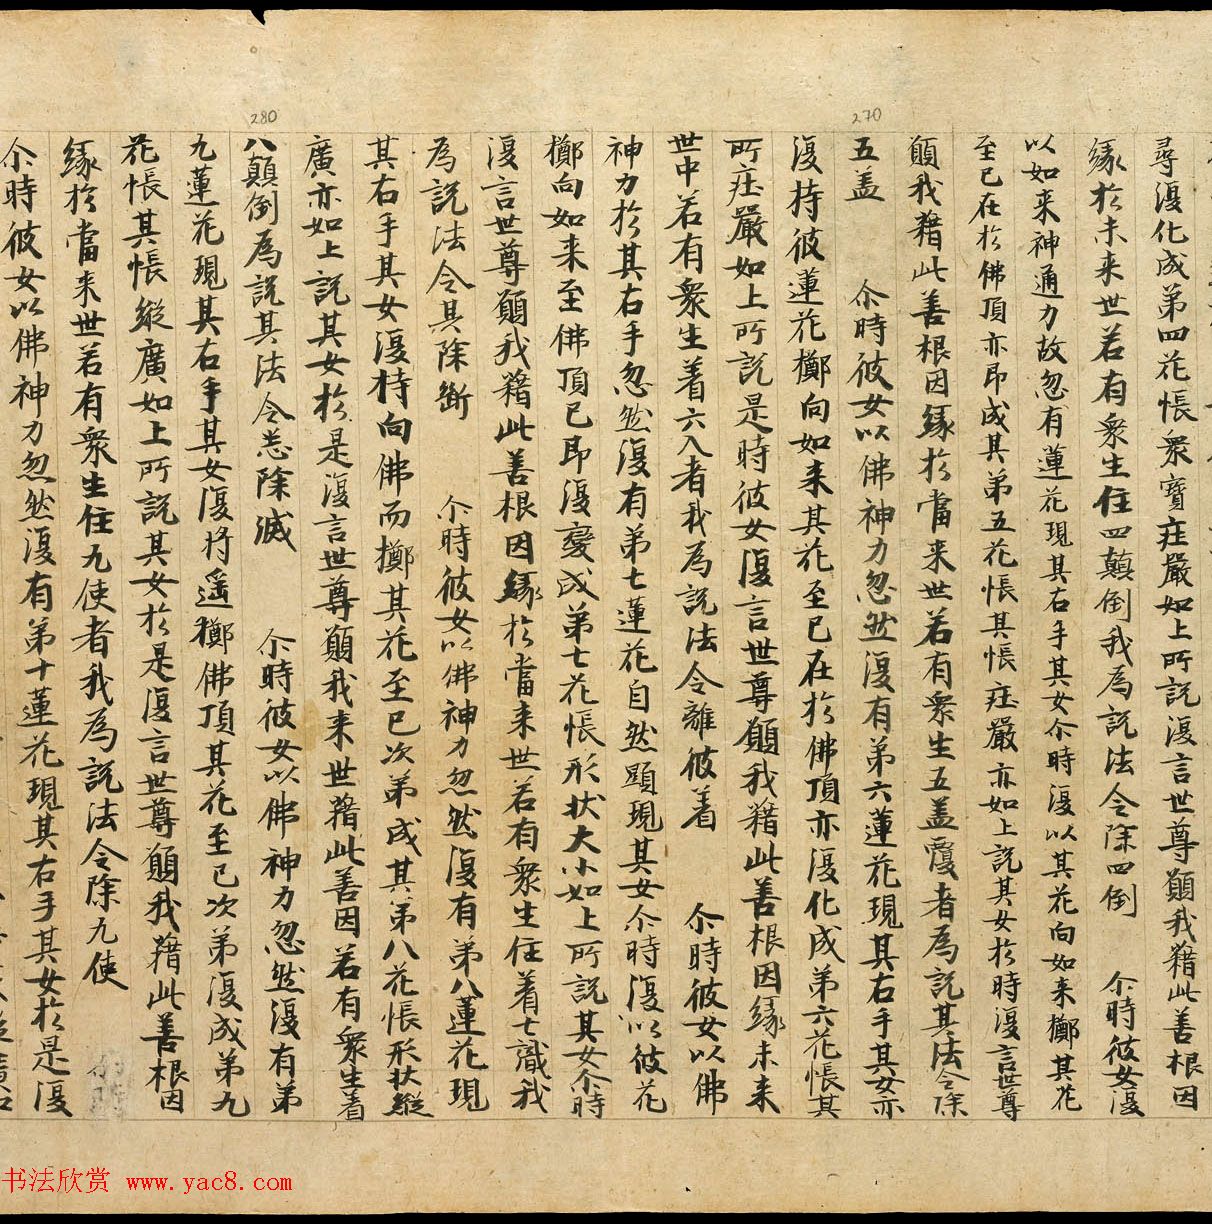 尋復化成第四花帳衆寳莊嚴如上所説復言世尊願我藉此善根因
緣於未来世若有衆生住四顛倒我為説法令除四倒 尒時彼女復
以如来神通力故忽有蓮花現其右手其女尒時復以其花向如来擲其花
至已在於佛頂亦即成其第五花帳其帳莊嚴亦如上説其女於時復言世尊
願我藉此善根因緣於當来世若有衆生五盖覆者為説其法令除
五盖 尒時彼女以佛神力忽然復有第六蓮花現其右手其女亦
復持彼蓮花擲向如来其花至已在於佛頂亦復化成第六花帳其
所莊嚴如上所説是時彼女復言世尊願我藉此善根因緣未来
世中若有衆生着六入者我為説法令離彼着 尒時彼女以佛
神力於其右手忽然復有第七蓮花自然顯現其女尒時復以彼花
擲向如来至佛頂已即復變成第七花帳形状大小如上所説其女尒時
復言世尊願我藉此善根因緣於當来世若有衆生住着七識我
為説法令其除斷 尒時彼女以佛神力忽然復有第八蓮花現
其右手其女復持向佛而擲其花至已次第成其第八花帳形状縱
廣亦如上説其女於是復言世尊願我来世藉此善因若有衆生着
八顛倒為説其法令悉除滅 尒時彼女以佛神力忽然復有第
九蓮花現其右手其女復将遥擲佛頂其花至已次第復成第九
花帳其帳縱廣如上所説其女於是復言世尊願我藉此善根因
緣於當来世若有衆生住九使者我為説法令除九使
尒時彼女以佛神力忽然復有第十蓮花現其右手其女於是復
270
280
书法欣赏 www.yac8.com